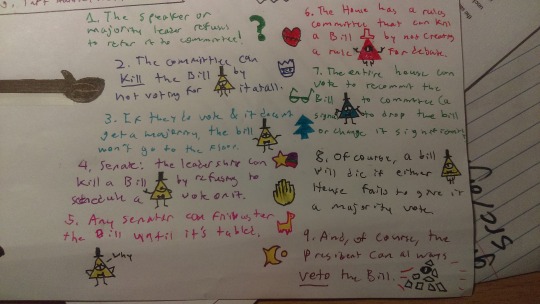 1. The speaker or
majority leader refuses
to refer it to committee!
2. The committee can
Kill the Bill by
not voting for it at all.
3. If they do vote & it doesn't
get a majority, the bill
won't go to the floor.
4. Senate: the leadership can
Kill a Bill by refusing to
schedule a vote on it.
5. Any senator can filibuster
the Bill until it's tabled.
why
6. The House has a rules
committee that can kill
a Bill by not creating
a rule for debate.
7. The entire house can
vote to recommit the
Bill to committee (a
signal to drop the bill
or change it significantly
8. Of course, a bill
will die if either
House fails to give it
a majority vote.
9. And, of course, the
President can always
veto the Bill.